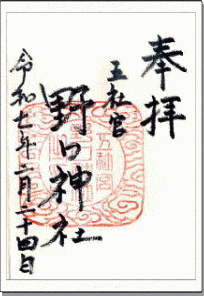 奉拝
五社宮
野口神社
令和七年二月二十四日